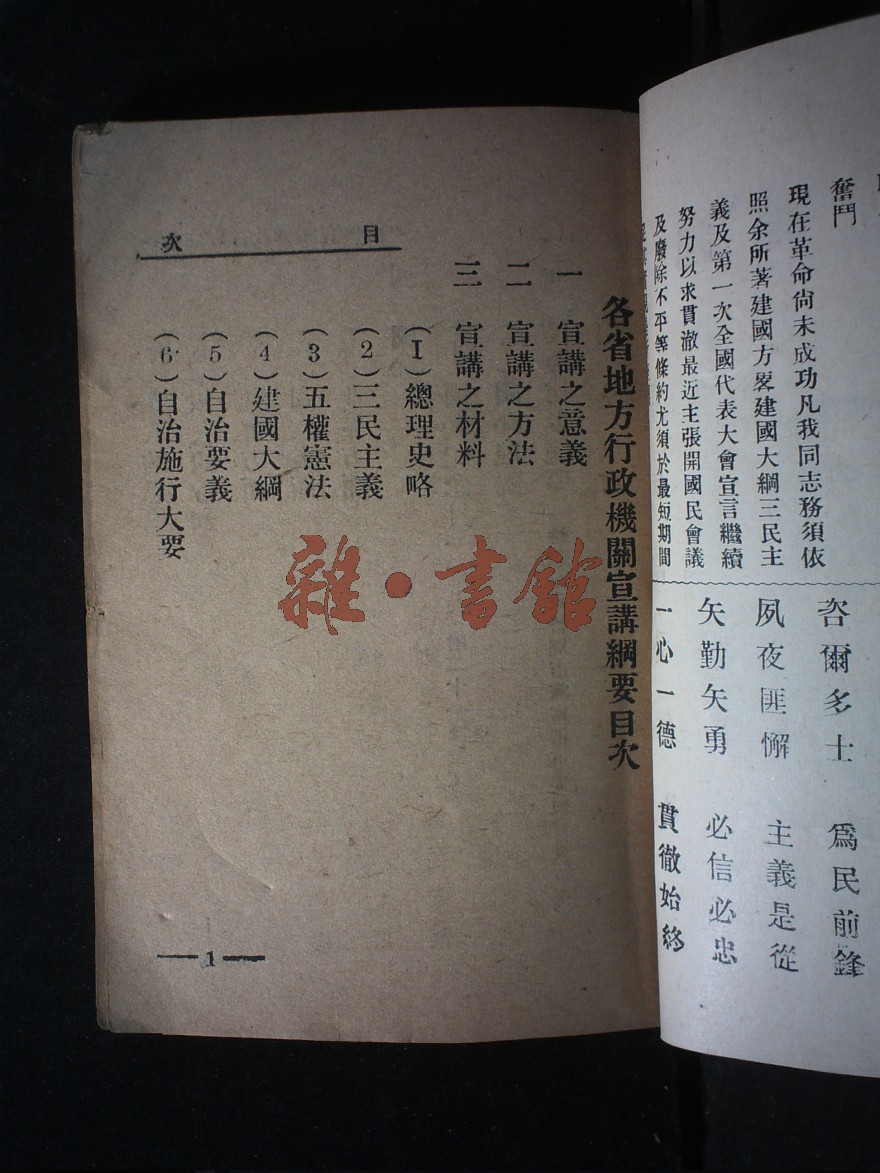 奮鬥
現在革命尚未成功凡我同志務須依
照余所著建國方畧建國大綱三民主
義及第一次全國代表大會宣言繼續
努力以求貫澈最近主張開國民會議
及廢除不平等條約尤須於最短期間
咨爾多士 爲民前鋒
夙夜匪懈 主義是從
矢勤矢勇 必信必忠
一心一德 貫徹始終
各省地方行政機關宣講綱要目次
目次
一 宣講之意義
二 宣講之方法
三 宣講之材料
(1)總理史略
(2)三民主義
(3)五權憲法
(4)建國大綱
(5)自治要義
(6)自治施行大要
1
雜·書館